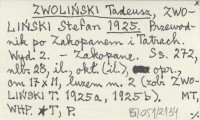 ZWOLIŃSKI Tadeusz, ZWO-
LIŃSKI Stefan 1925. Przewod-
nik po Zakopanem i Tatrach.
Wyd. 2. – Zakopane. Ss. 272,
nlb. 28, il., okł. (il.), opr.,
cm 17 x 11, luzem m. 2 (zob. ZWO-
LIŃSKI T. 1925a, 1925b). MT,
WHP. *T, P.